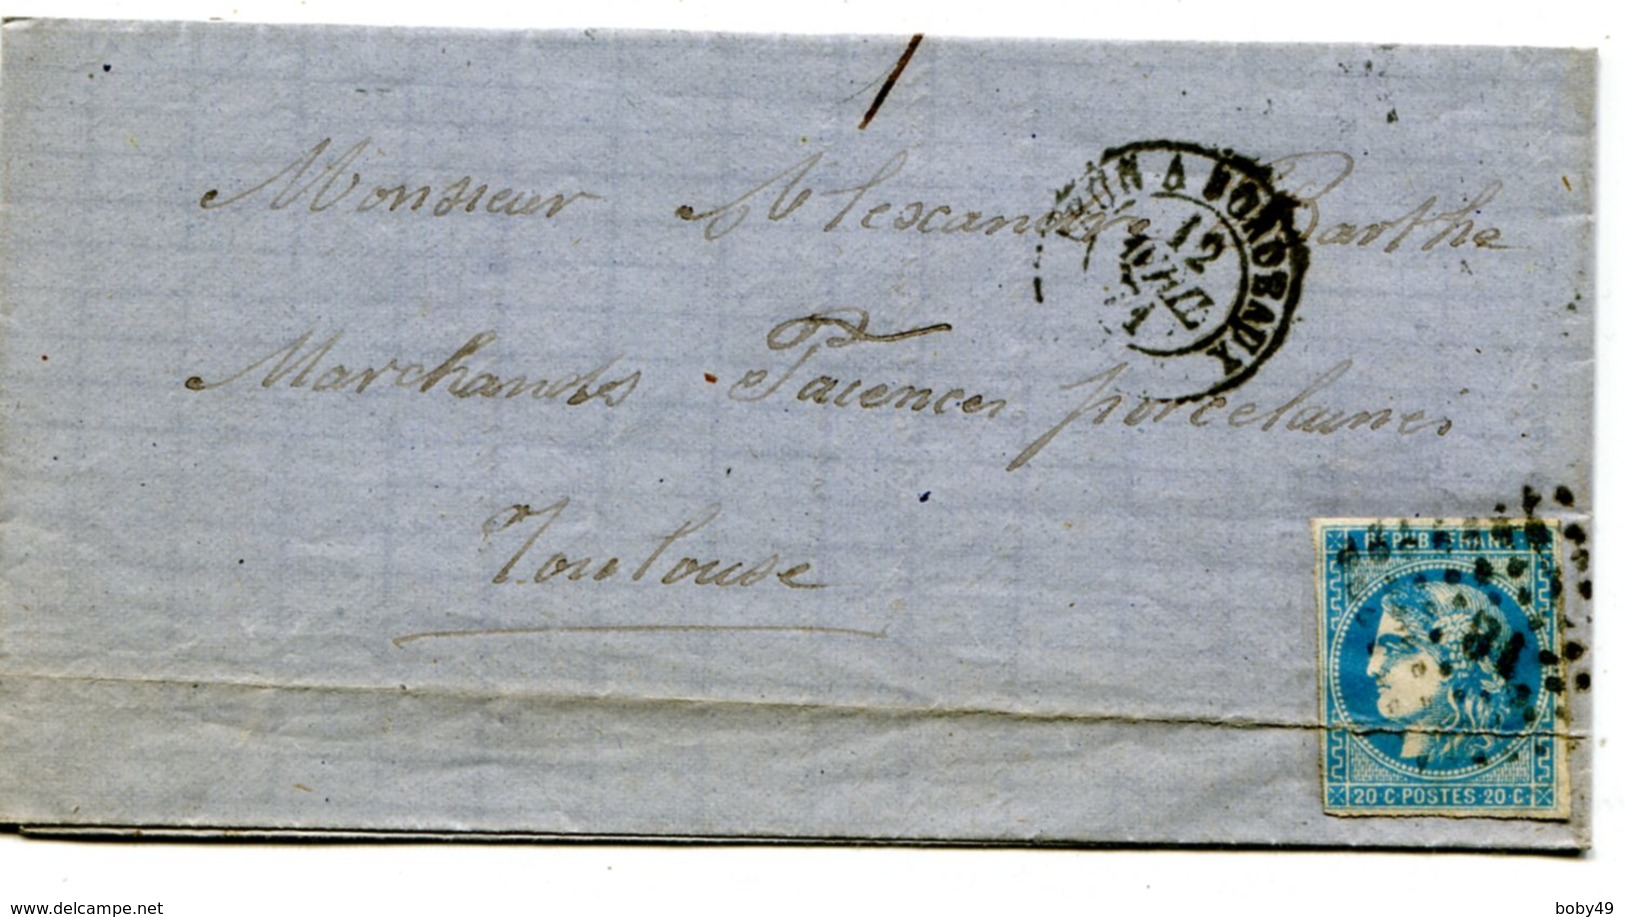 Monsieur Alexandre Barthe
Marchands Faiences porcelaines
Toulouse
LYON A BORDEAUX
12
AVRIL
71
REPUB FRANC
20·C·POSTES·20·C·
delcampe.net
boby49